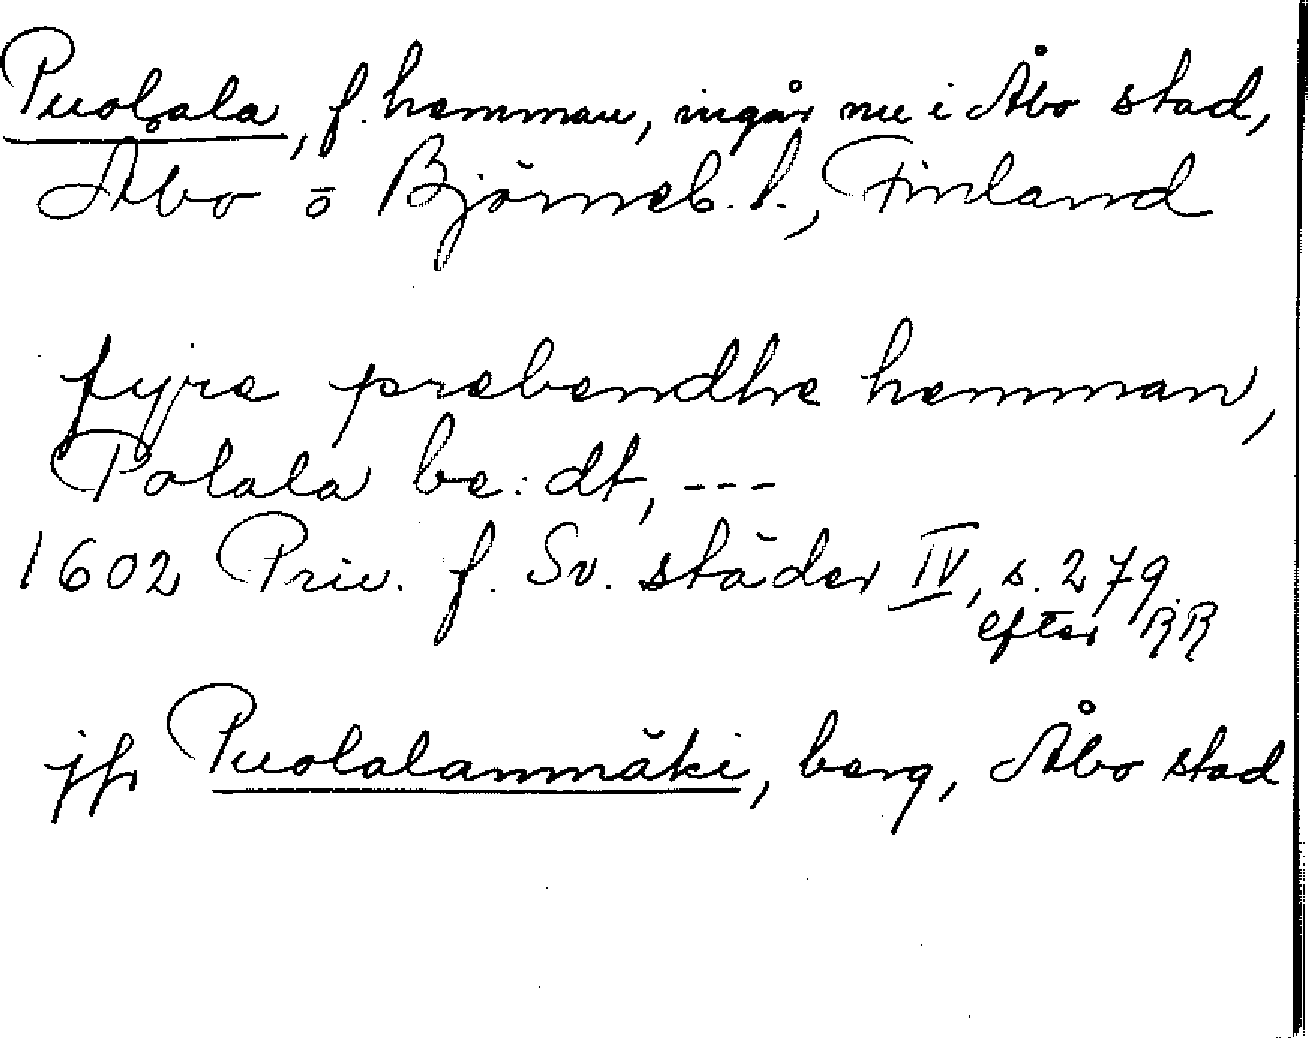 Puolala, f. hemman, ingår nu i Åbo stad,
Åbo o Björneb. l., Finland
fyre prebendhe hemman,
Polala be: dt, ---
1602 Priv. f. Sv. städer IV, s. 279
efter RR
jfr Puolalanmäki, berg, Åbo stad